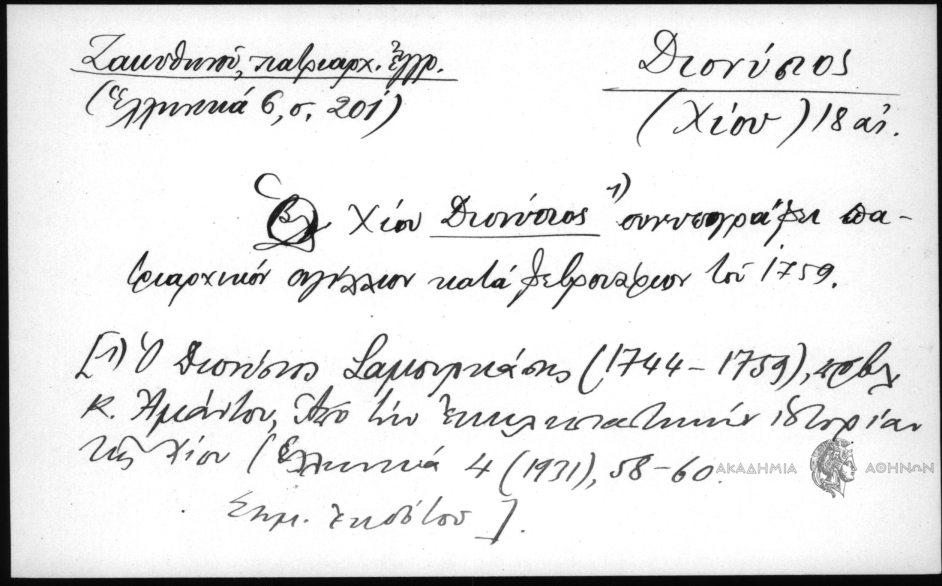 Ζακυθηνοῦ, πατριαρχ. ἔγγρ.
(Ἑλληνικά 6, σ. 201)
Διονύσιος
(Χίου) 18 αἰ.
Χίου Διονύσιος 1) συνυπογράφει πα-
τριαρχικόν σιγίλλιον κατά Φεβρουάριον τοῦ 1759.
[1) Ὁ Διονύσιος (1744 – 1759), πρβλ
Κ. Ἀμάντου, Ἀπό τήν ἐκκλησιαστικήν ἱστορίαν
τῆς Χίου (Ἑλληνικά 4 (1931), 58 – 60.
Σημ. ἐκδότου].
ΑΚΑΔΗΜΙΑ ΑΘΗΝΩΝ